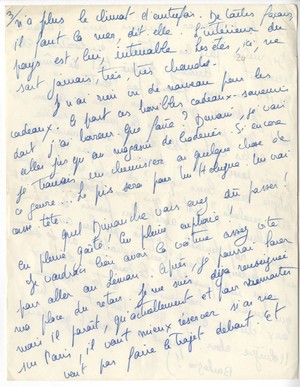 3/ n'a plus le climat d'autrefois. De toutes façons,
il faut la mer, dit elle. L'intérieur du
pays est, lui, intenable. Les étés, ici, ne
sont jamais, très, très chauds.
Je n'ai rien vu de nouveau pour les
cadeaux. à part ces horribles cadeaux-souvenirs
dont j'ai horreur. Que faire? Demain, je vais
aller jusqu'au magasin de Si encore
je trouvais un chemisier ou quelque chose de
ce genre... Le pis sera pour Un vrai
casse tête.
quel Dimanche vous avez dû passer!
En pleine gaîté! En pleine euphorie!
Je voudrais bien avoir la voiture assez vite
pour aller au Léman. Après, je pourrai fixer
ma place du retour. Je me suis déjà renseignée
mais il paraît, qu'actuellement et pour remonter
sur Paris, il vaut mieux réserver si on ne
veut pas faire le trajet debout et